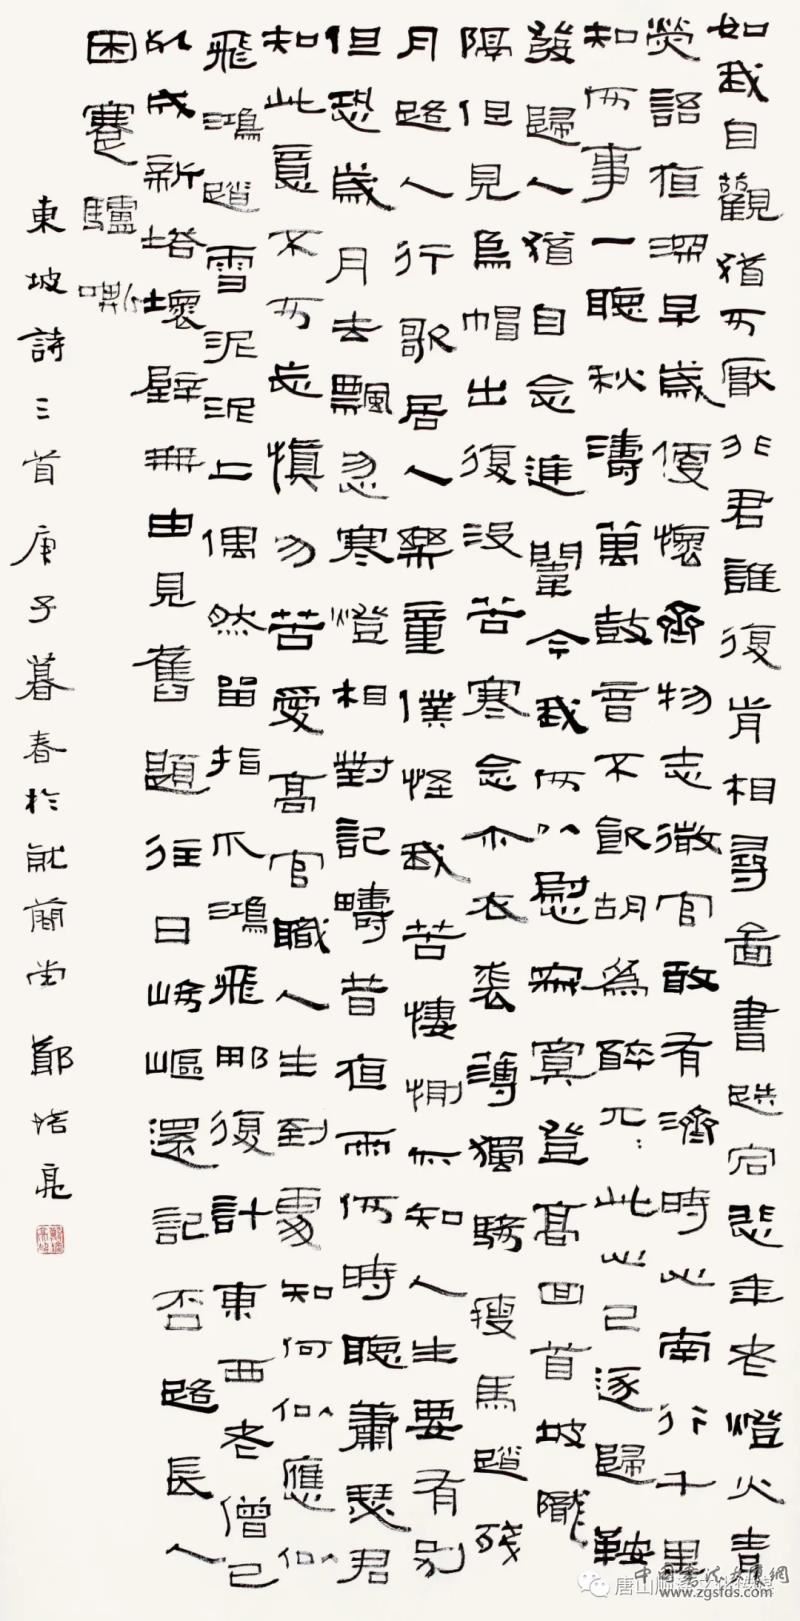 如我自觀猶可厭非君誰復肯相尋圖書跌宕悲年老燈火青
熒語夜深早歲便懷齊物志微官敢有濟時心南行千里
知何事一聽秋濤萬鼓音不飲胡為醉兀兀此心已逐歸鞍
發歸人猶自念庭闈今我何以慰寂寞登高回首坡隴
隔但見烏帽出復没苦寒念尒衣裘薄獨騎瘦馬踏殘
月路人行歌居人樂童僕怪我苦悽惻亦知人生要有別
但恐歲月去飄忽寒燈相對記疇昔夜雨何時聽蕭瑟君
知此意不可忘慎勿苦愛高官職人生到處知何似應似
飛鴻踏雪泥泥上偶然留指爪鴻飛那復計東西老僧已
死成新塔壞壁無由見舊題往日崎嶇還記否路長人
困蹇驢嘶
東坡詩三首庚子暮春於堂鄭培亮
www.zgsfds.com